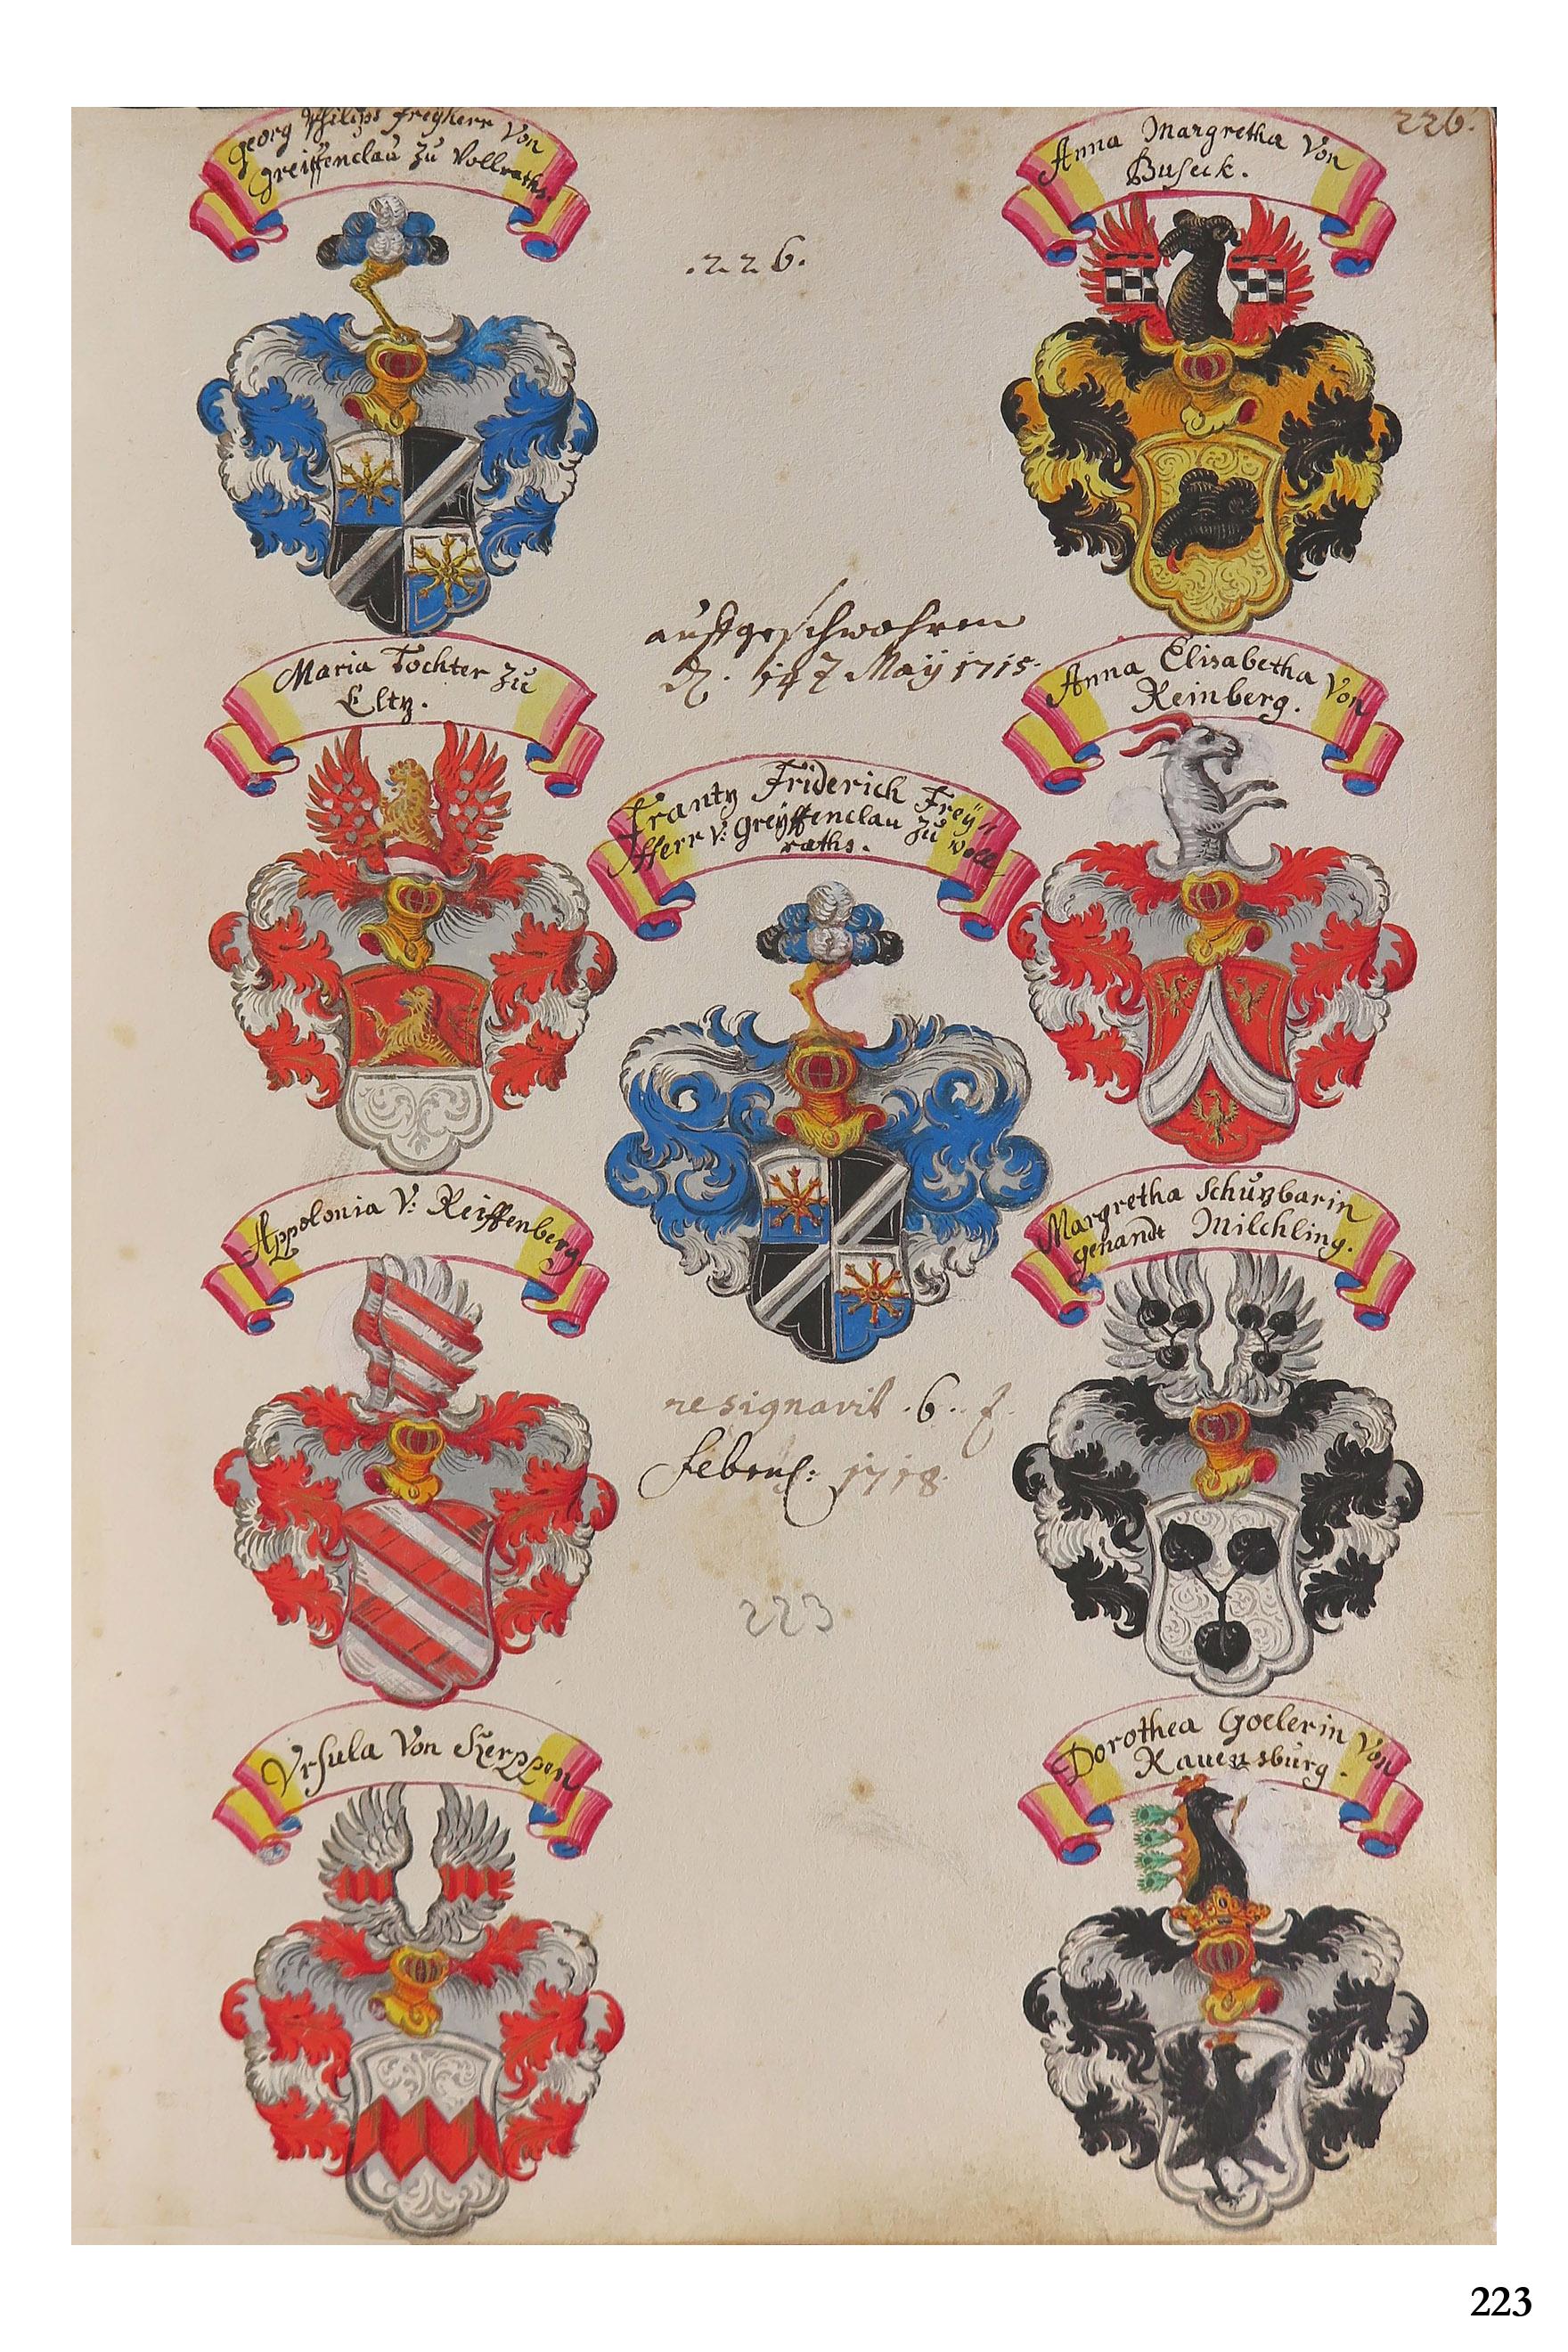 226.
Georg Philips Freyherr Von
greiffenclau zu Vollraths
Anna Margretha Von
Buseck.
.226.
auffgeschwohren
May 1715.
Maria Tochter zu
Eltz.
Anna Elisabetha Von
Reinberg.
Frantz Friderich Frey„
Herr v: Greÿffenclau zu Voll
raths.
Appolonia V: Reiffenberg
Margretha Schutzbarin
genandt Milchling.
resignavit .6..
febru: 1718.
223
Ursula Von Kerppen
Dorothea Goelerin Von
Rauenssburg.
223